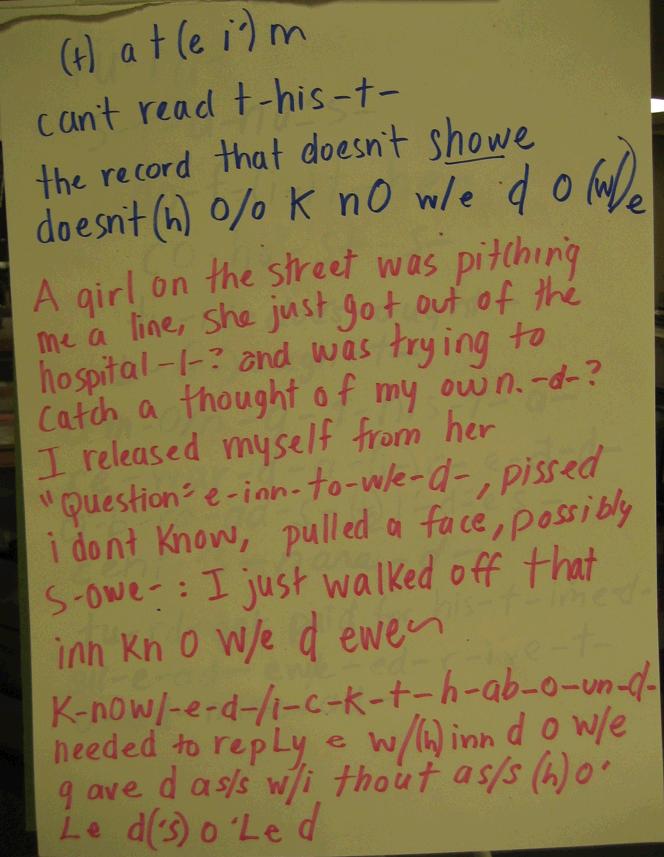 (t) a t(e i') m
can't read t-his-t-
the record that doesn't showe
doesn't (h) o/o K nO w/e d o (w)/e
A girl on the street was pitching
me a line, she just got out of the
hospital-1-? and was trying to
Catch a thought of my own.-d-?
I released myself from her
"Question" e-inn-to-w/e-d-, pissed
i dont know, pulled a face, possibly
S-owe-: I just walked off that
inn Kn O w/e d ewen
K-now/-e-d-/i-c-k-t-h-ab-o-un-d-
needed to reply e w/(h) inn d o w/e
gave d as/s w/i thout as/s (h) o'
Le d('s) o 'Le d